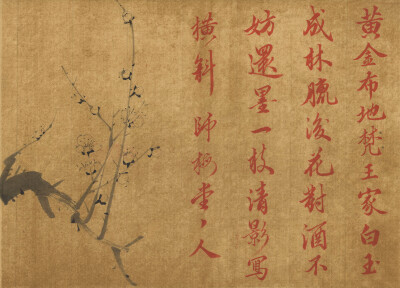 黃金布地梵王家白玉
成林臘後花對酒不
妨還墨一枝清影寫
橫斜 師堂人